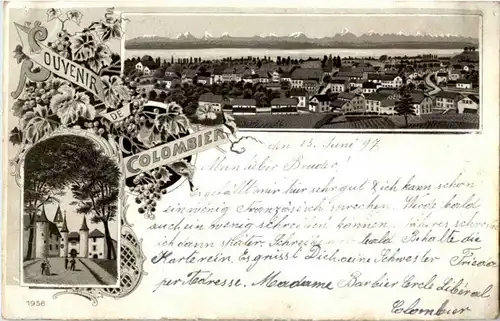 SOUVENIR
DE
COLOMBIER
den 13. Juni 97.
Mein lieber Bruder!
Es gefällt mir hier sehr gut & ich kann schon
ein wenig Französisch sprechen. Werde bald
auch ein wenig schreiben können. Näheres schreibe
ich dann später. Schreibe bald Behalte die
Karte rein. Es grüsst Dich deine Schwester Frieda
per Adresse. Madame Barbier Cercle Libéral
Colombier
1956